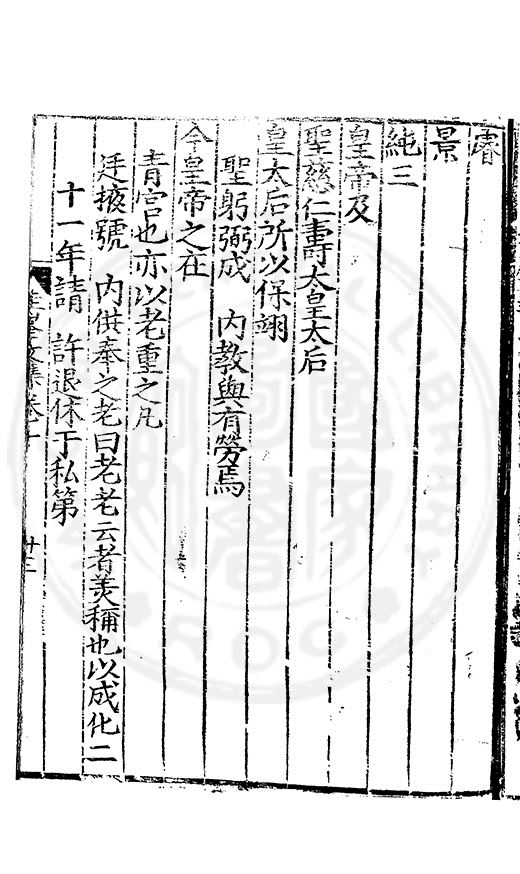 睿
景
純三
皇帝及
聖慈仁壽太皇太后
皇太后所以保翊
聖躬弼成　内教與有勞焉
今皇帝之在
青宮也亦以老重之凡
廷掖號　内供奉之老曰老老云者美稱也以成化二
十一年請　許退休于私第
文集卷十
十三